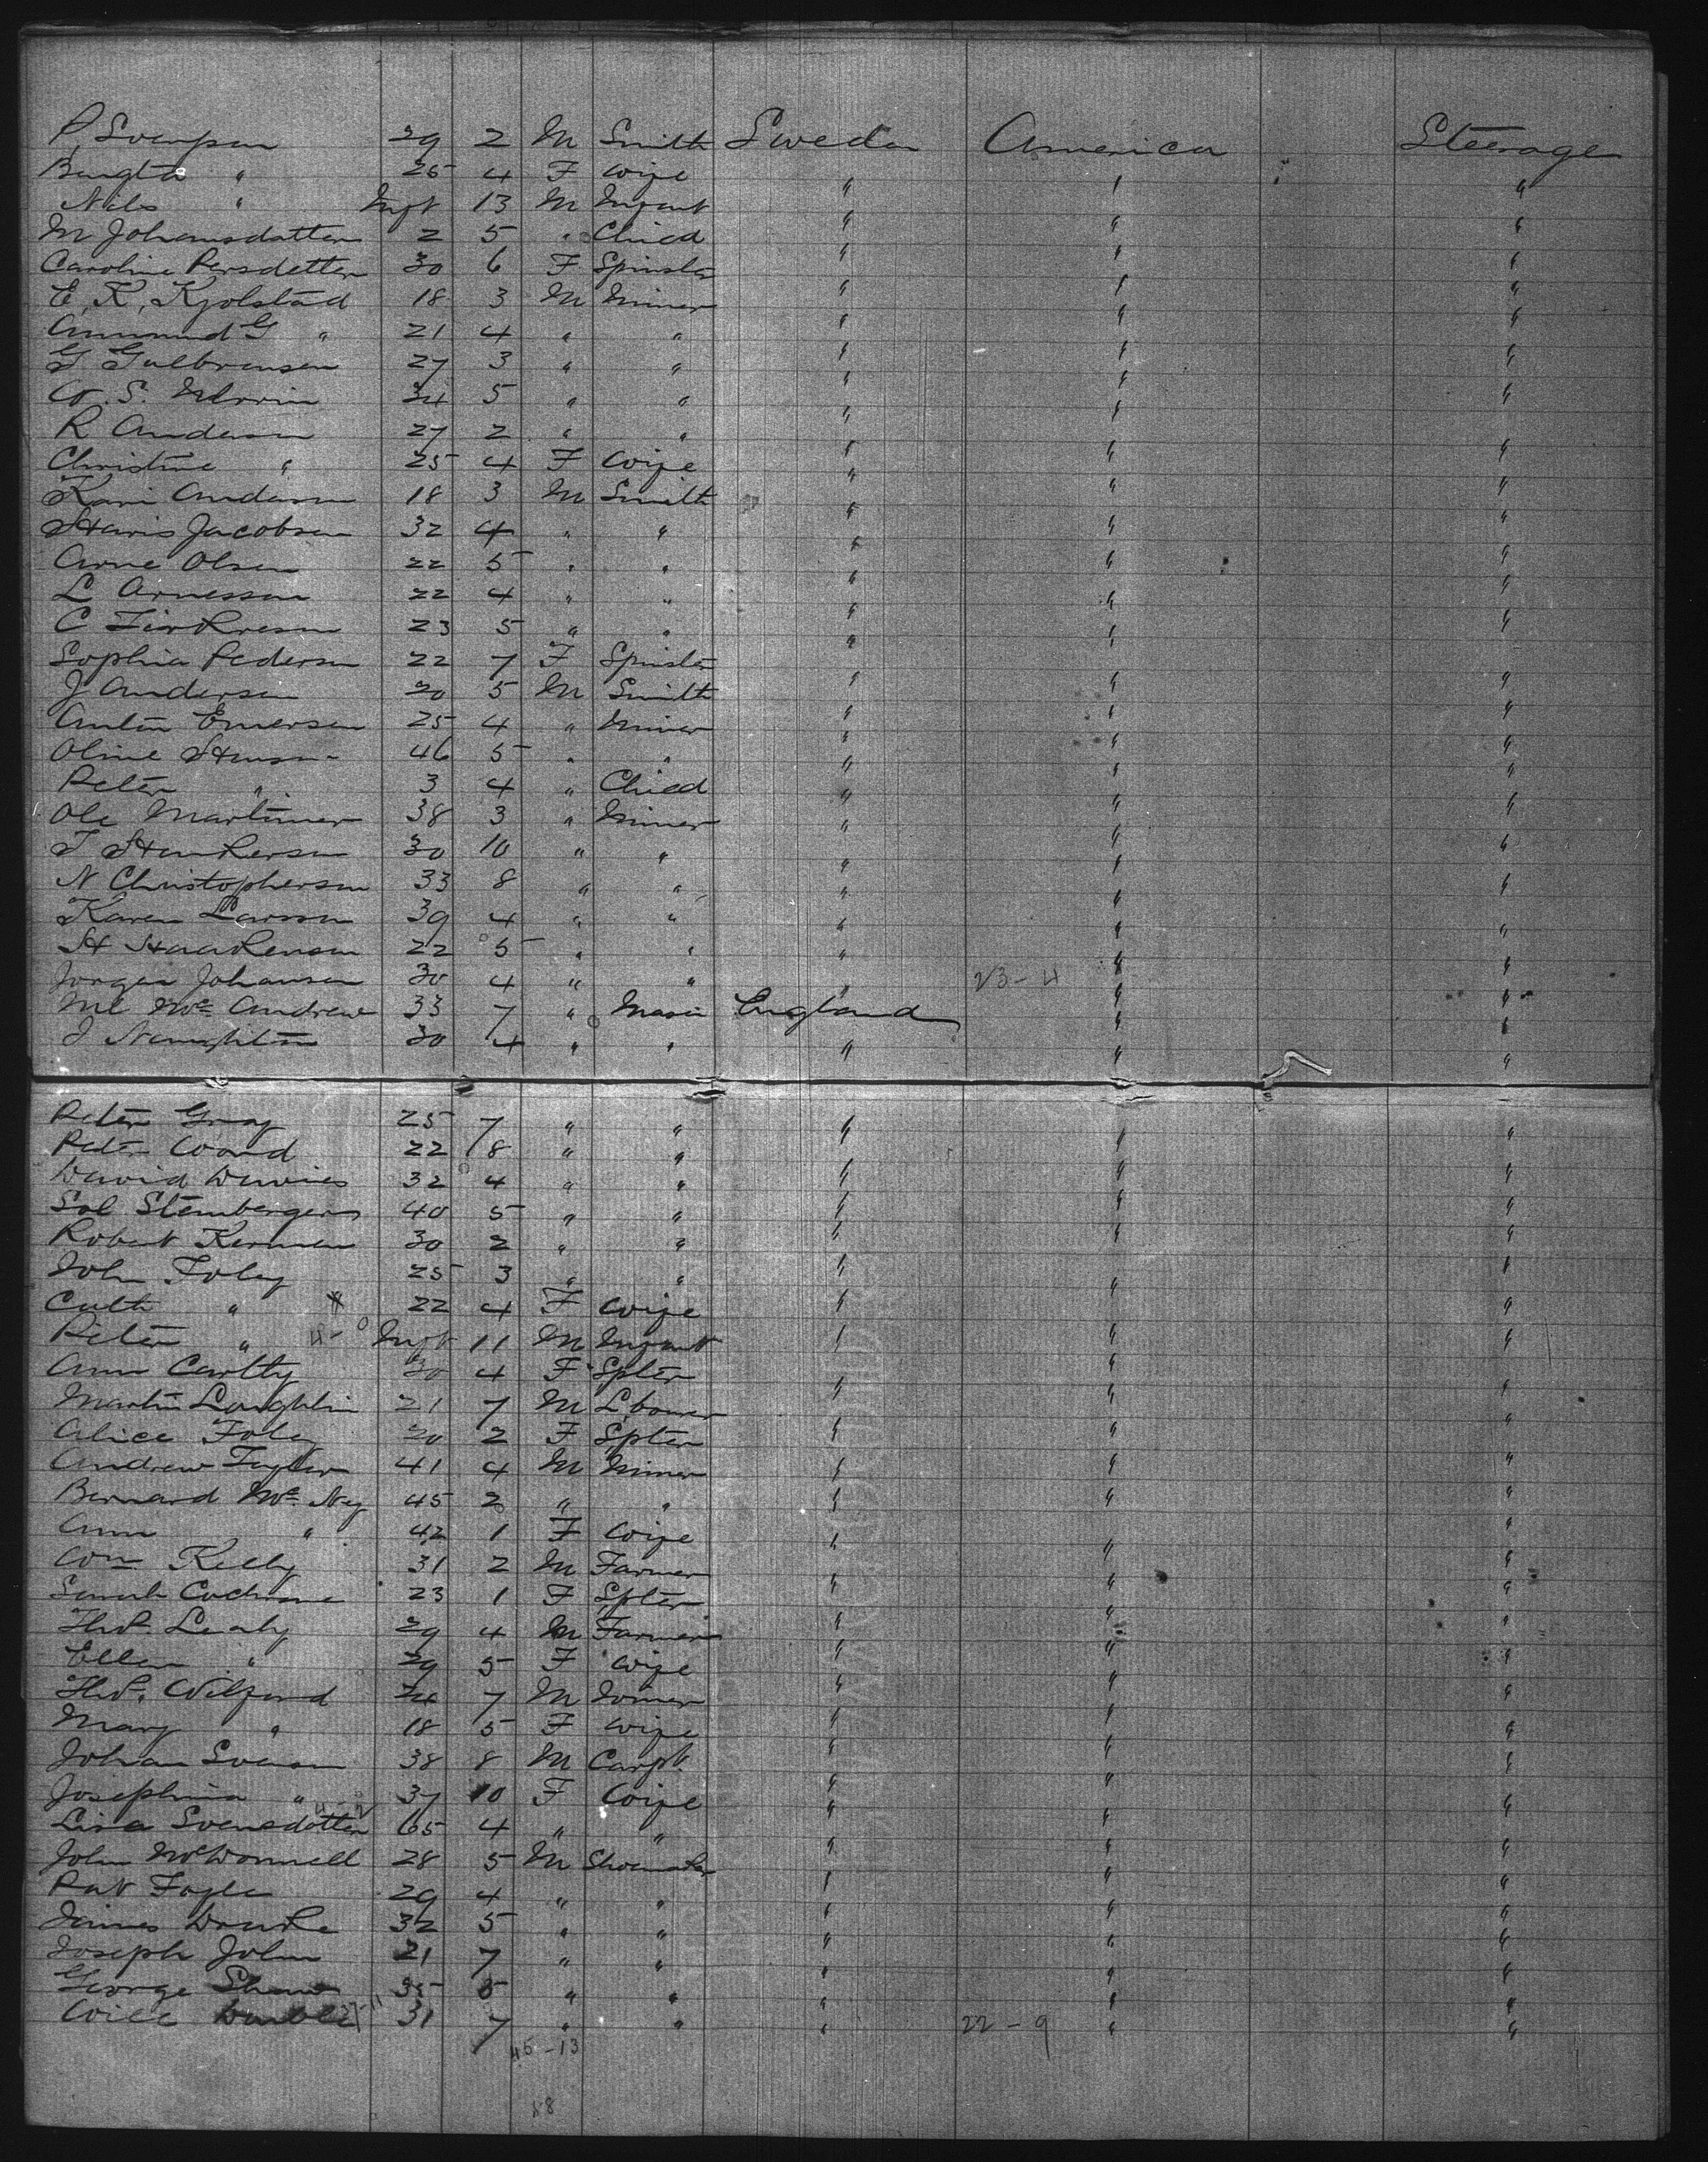 P. Svenpson 29 2 M Smith Sweden America Steerage
Bengta " 25 4 F Wife " " "
Nils " Inft 13 M Infant " " "
M Johannsdatter 2 5 " Child " " "
Caroline Persdetter 30 6 F Spinster " " "
E. K. Kjolstad 18 3 M Miner " " "
Ammund G " 21 4 " " " " "
G Gulbrensen 27 3 " " " " "
34 5 " " " " "
R Anderson 27 2 " " " " "
Christine " 25 4 F Wife " " "
Kari Anderson 18 3 M Smith " " "
Hans Jacobsen 32 4 " " " " "
Arne Olsen 22 5 " " " " "
L Arnesson 22 4 " " " " "
C 23 5 " " " " "
Sophia Pederson 22 7 F Spinster " " "
J Andersen 20 5 M Smith " " "
Anton Emersen 25 4 " Miner " " "
Oline Hanson 46 5 " " " " "
Peter " 3 4 " Child " " "
Ole Martinner 38 3 " Miner " " "
T 30 10 " " " " "
N Christopherson 33 8 " " " " "
Karen Larsson 39 4 " " " " "
H Haakenson 22 5 " " " " "
Jorgen Johansen 30 4 " " " 23-4 " "
Ml Mc Andrew 33 7 " Mason England " "
J Naughton 30 4 " " " " "
Peter Gray 25 7 " " " " "
Peter Ward 22 8 " " " " "
David Davies 32 4 " " " " "
Sol Stembergers 40 5 " " " " "
Robert Kernan 30 2 " " " " "
John Foley 25 3 " " " " "
Cath " 22 4 F Wife " " "
Peter " Inft 11 M Infant " " "
Ann Carlty 30 4 F Spter " " "
Martin Loughlin 21 7 M Lbourer " " "
Alice Foley 20 2 F Spter " " "
Andrew Taylor 41 4 M Miner " " "
Bernard Mc Ny 45 2 " " " " "
Ann " 42 1 F Wife " " "
Wm Kelly 31 2 M Farmer " " "
Sarah Cochrane 23 1 F Spter " " "
Thos. Leahy 29 4 M Farmer " " "
Ellen " 29 5 F Wife " " "
Thos. Wilford 24 7 M Joiner " " "
Mary " 18 5 F Wife " " "
Johan Svenson 38 8 M Carpt " " "
Josephina " 37 10 F Wife " " "
Lisa Svensdotter 65 4 " " " " "
John McDonnell 28 5 M Shoemaker " " "
Pat Fogle 29 4 " " " " "
James Bourke 32 5 " " " " "
Joseph John 21 7 " " " " "
George Shaw 35 5 " " " " "
Will 31 7 " " " 22-9 " "
45-13
88